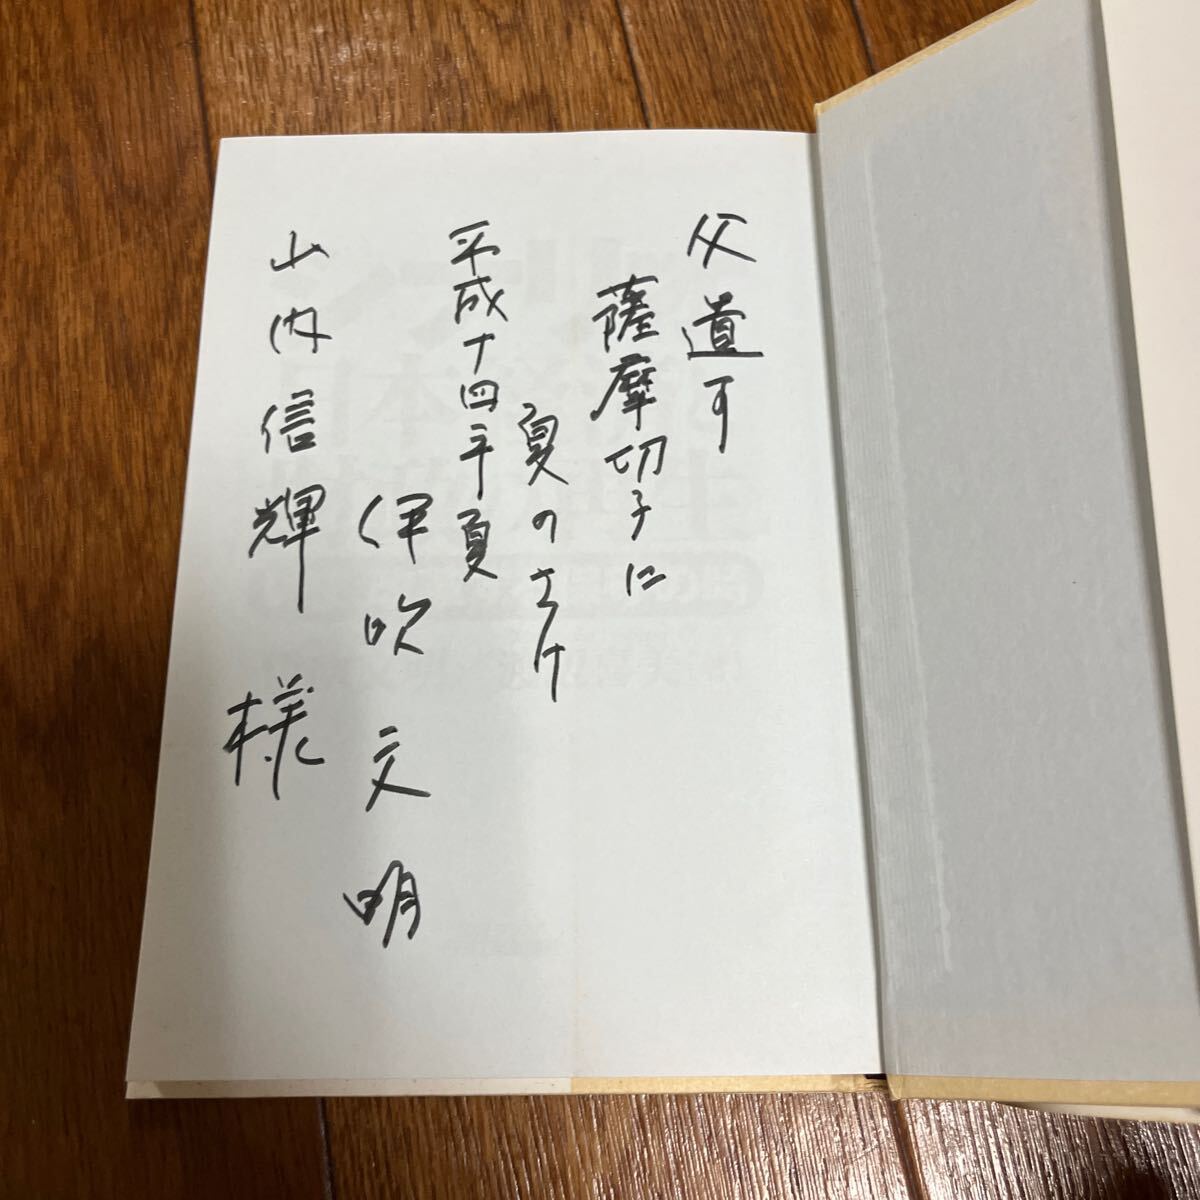 父遺す
薩摩切子に
夏のさけ
平成十四年夏
伊吹文明
山内信輝様